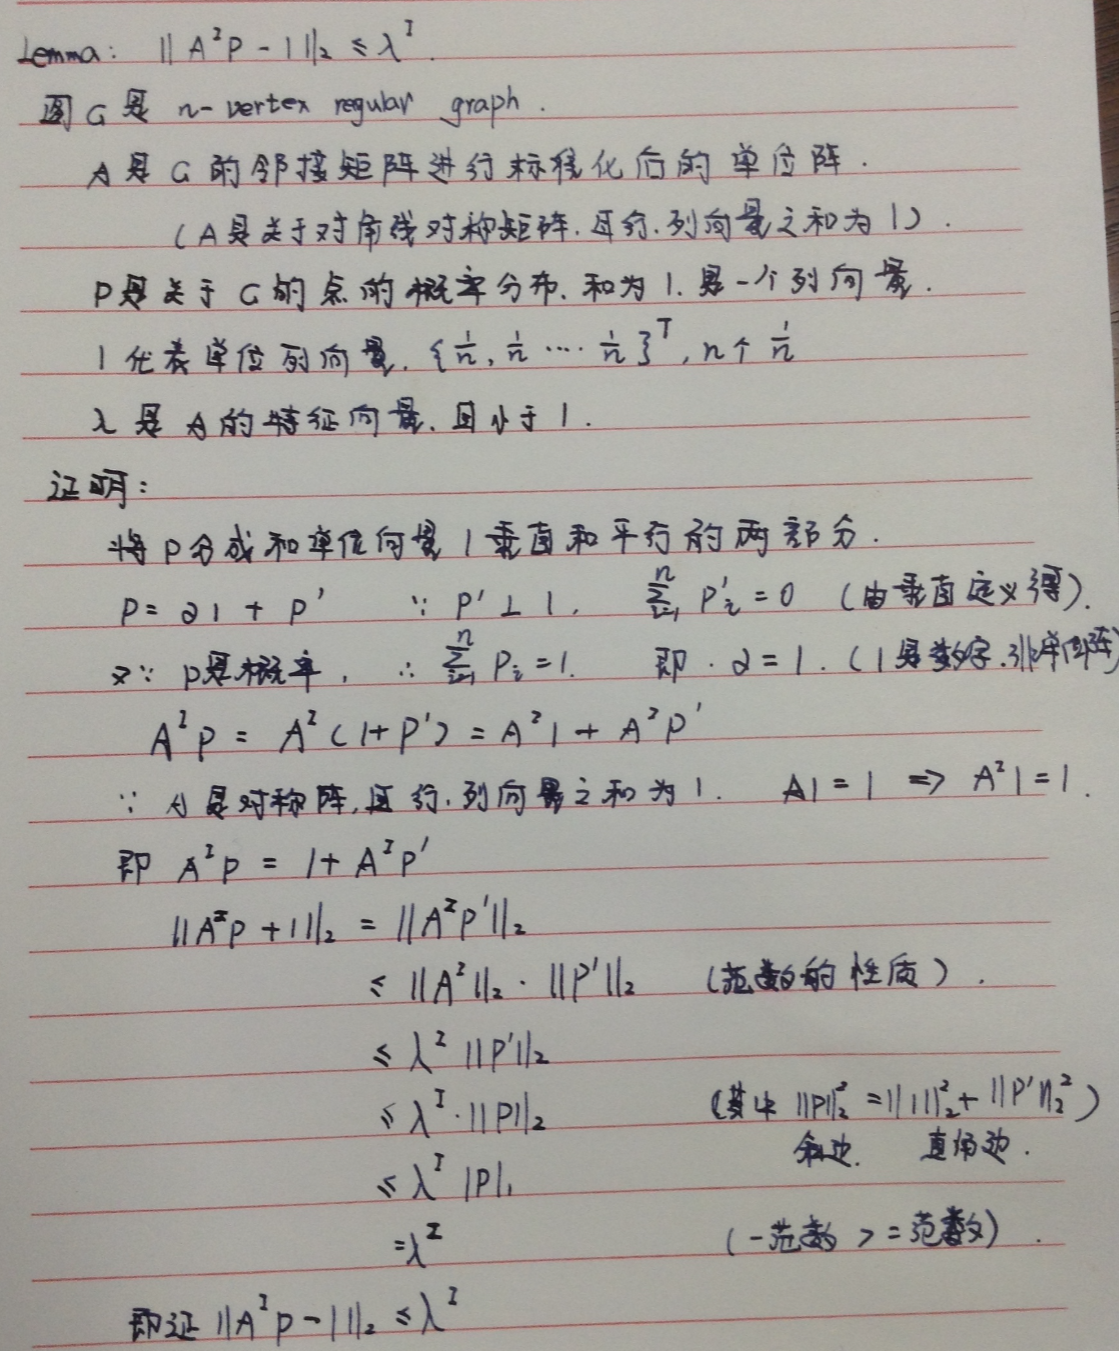 Lemma: || A^2 P - 1 ||_2 ≤ λ^2.
图 G 是 n-vertex regular graph.
A 是 G 的邻接矩阵进行标准化后的单位阵.
(A是关于对角线对称矩阵, 且行、列向量之和为1).
P是关于G的点的概率分布, 和为1, 是一个列向量.
1 代表单位列向量. {1/n, 1/n ···· 1/n}^T, n个 1/n
λ 是 A 的特征向量, 且小于1.
证明:
将P分成和单位向量1垂直和平行的两部分.
P = α1 + P' ∵ P' ⊥ 1, ∑_{i=1}^n P'_i = 0 (由垂直定义得).
又∵ P是概率, ∴ ∑_{i=1}^n P_i = 1. 即. α = 1. (1是数字, 非单位阵)
A^2 P = A^2 (1 + P') = A^2 1 + A^2 P'
∵ A是对称阵, 且行、列向量之和为1. A1 = 1 => A^2 1 = 1.
即 A^2 P = 1 + A^2 P'
||A^2 P + 1||_2 = ||A^2 P'||_2
≤ ||A^2||_2 · ||P'||_2 (范数的性质).
≤ λ^2 ||P'||_2
≤ λ^2 · ||P||_2 (其中 ||P||_2^2 = ||1||_2^2 + ||P'||_2^2)
斜边. 直角边.
≤ λ^2 |P|_1
= λ^2 (一范数 > 二范数).
即证 ||A^2 P - 1||_2 ≤ λ^2